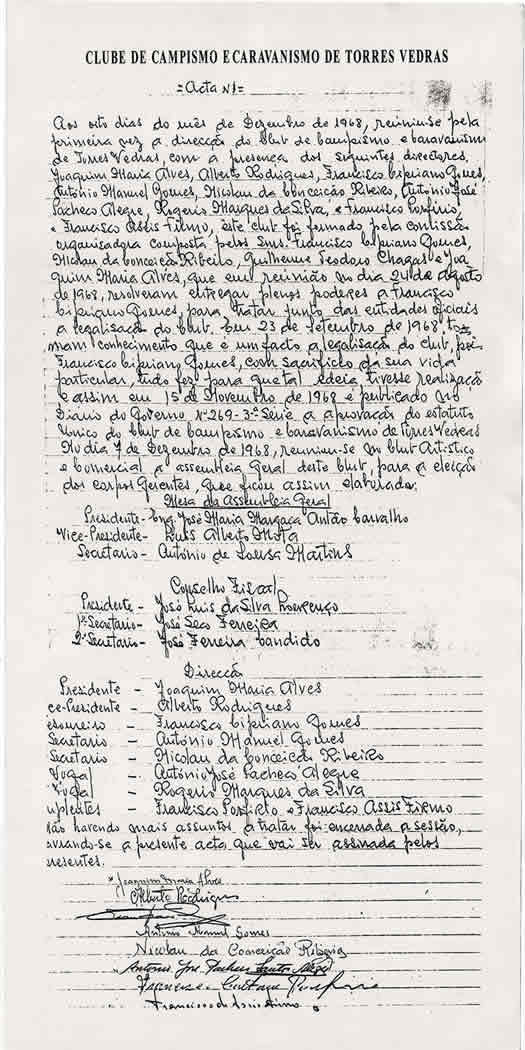 CLUBE DE CAMPISMO E CARAVANISMO DE TORRES VEDRAS
=Acta Nº1=
Aos oito dias do mês de Dezembro de 1968, reuniu-se pela
primeira vez a direcção do Club de Campismo e Caravanismo
de Torres Vedras, com a presença dos seguintes directores,
Joaquim Maria Alves, Alberto Rodrigues, Francisco Cipriano Gomes,
António Manuel Gomes, Nicolau da Conceição Ribeiro, António José
Pacheco Alegre, Rogerio Marques da Silva, e Francisco Porfirio,
e Francisco Assis Firmo, este club foi formado pela comissão
organisadora composta pelos Snrs. Francisco Cipriano Gomes,
Nicolau da Conceição Ribeiro, Guilherme Teodoro Chagas e Joa-
quim Maria Alves, que em reunião no dia 24 de Agosto
de 1968, resolveram entregar plenos poderes a Francisco
Cipriano Gomes, para tratar junto das entidades oficiais
a legalisação do club. Em 23 de Setembro de 1968 to-
mam conhecimento que é um facto a legalisação do club, pois
Francisco Cipriano Gomes, com sacrificio da sua vida
particular, tudo fez para que tal edeia tivesse realização
e assim em 15 de Novembro de 1968 é publicado no
Diário do Governo Nº 269-3ª Série a aprovação do estatuto
Unico do Club de Campismo e Caravanismo de Torres Vedras
No dia 7 de Dezembro de 1968, reuniu-se no Club Artistico
e Comercial a assembleia Geral deste Club, para a eleição
dos corpos Gerentes, que ficou assim elaborada:
Mesa da Assembleia Geral
Presidente - Eng. José Maria Margaça Antão Carvalho
Vice-Presidente - Luis Alberto Mota
Secretario - António de Sousa Martins
Conselho Fiscal
Presidente - José Luis da Silva Lourenço
1º Secretario - José Seco Ferreira
2º Secretario - José Ferreira Candido
Direcção
Presidente - Joaquim Maria Alves
ce-Presidente - Alberto Rodrigues
esoureiro - Francisco Cipriano Gomes
Secretario - António Manuel Gomes
Secretario - Nicolau da Conceição Ribeiro
Vogal - António José Pacheco Alegre
Vogal - Rogerio Marques da Silva
uplentes - Francisco Porfirio e Francisco Assis Firmo
não havendo mais assuntos a tratar foi encerrada a sessão,
avrando-se a presente acta que vai ser assinada pelos
resentes.
Joaquim Maria Alves
Alberto Rodrigues
António Manuel Gomes
Nicolau da Conceição Ribeiro
Antonio José Pacheco Alegre
Francisco Porfirio
Francisco de Assis Firmo